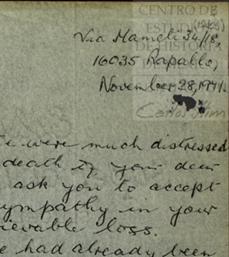 CENTRO DE
ESTUDIOS
DE HISTORIA
Via Mameli 34/18
16035 Rapallo,
November 28, 1971.
Carlos
were much distressed
death of your dear
ask you to accept
sympathy in your
loss.
had already been